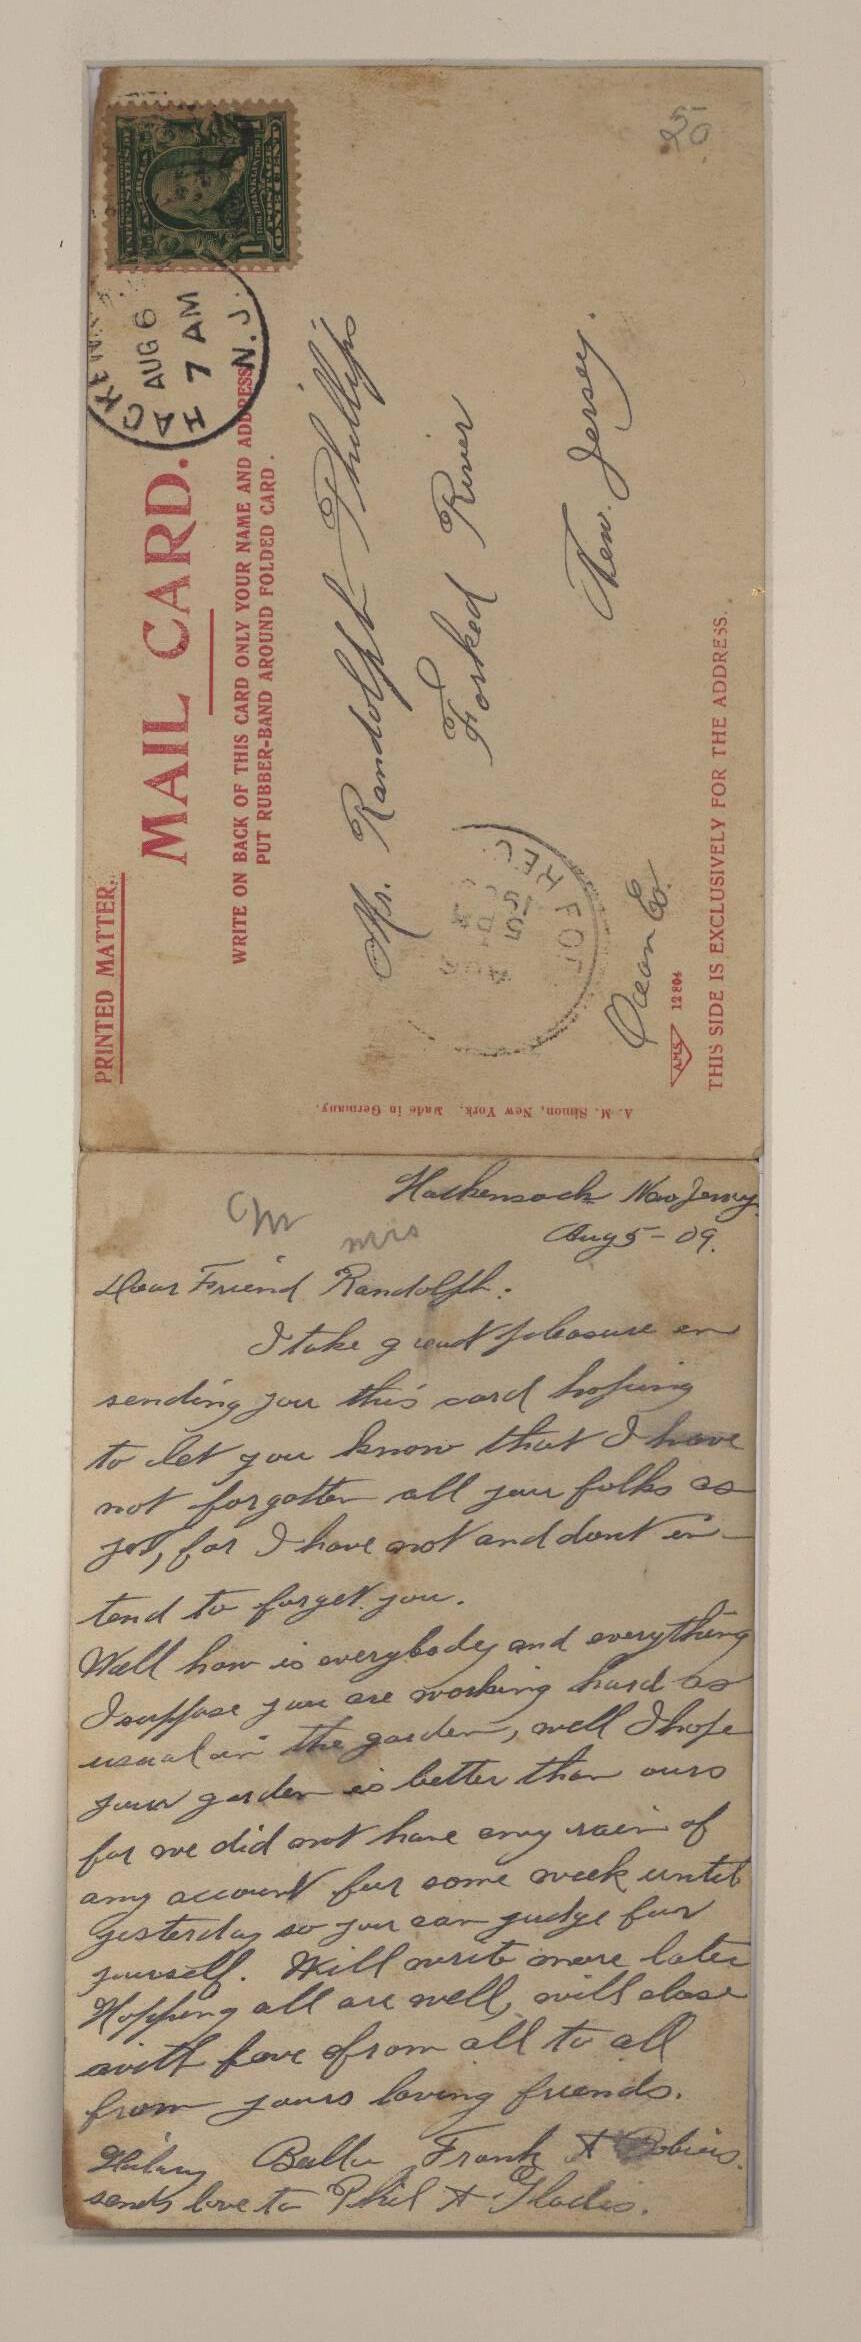 50
UNITED STATES OF
AMERICA
POSTAGE
ONE CENT
1 1
HACKEN
AUG 6
7 AM
N.J.
PRINTED MATTER.
MAIL CARD.
WRITE ON BACK OF THIS CARD ONLY YOUR NAME AND ADDRESS
PUT RUBBER-BAND AROUND FOLDED CARD.
Mr. Randolph Phillips
Forked River
New. Jersey.
Ocean Co.
REC
A.M.S. 12804
THIS SIDE IS EXCLUSIVELY FOR THE ADDRESS.
A. M. Simon, New York. Made in Germany.
Mr
Mrs
Hackensack New Jersey.
Aug 5 - 09.
Dear Friend Randolph:
I take great pleasure en
sending you this card hoping
to let you know that I have
not forgotten all your folks as
yet, for I have not and dont en-
tend to forget you.
Well how is everybody and everything
I suppose you are working hard as
usual in the garden, well I hope
your garden is better than ours
for we did not have any rain of
any account for some week until
yesterday so you can judge for
yourself. Will write more later
Hopping all are well, will close
with love from all to all
from yours loving friends.
Frank +
sends love to Phil + Gladis.